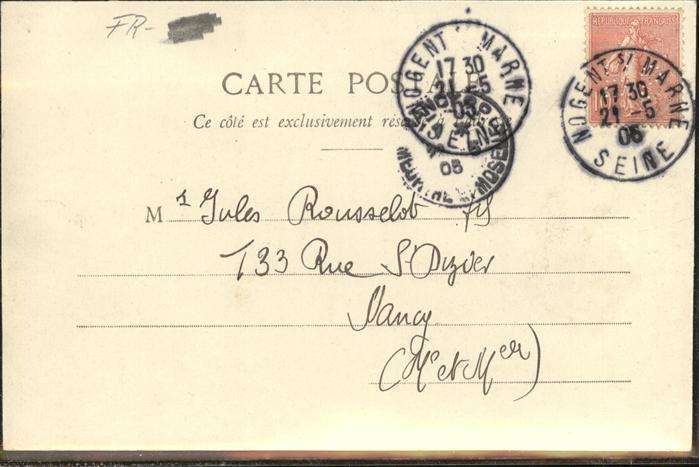 FR-
RÉPUBLIQUE FRANÇAISE
NOGENT S/ MARNE
17 30
21 - 5
05
SEINE
NOGENT S/ MARNE
17 30
21 - 5
05
SEINE
CARTE POSTALE
NANCY
05
MEURTHE MOSELLE
Ce côté est exclusivement réservé à
Mr Jules Rousselot fils
133 Rue St Dizier
Nancy
(Mthe et Melle)